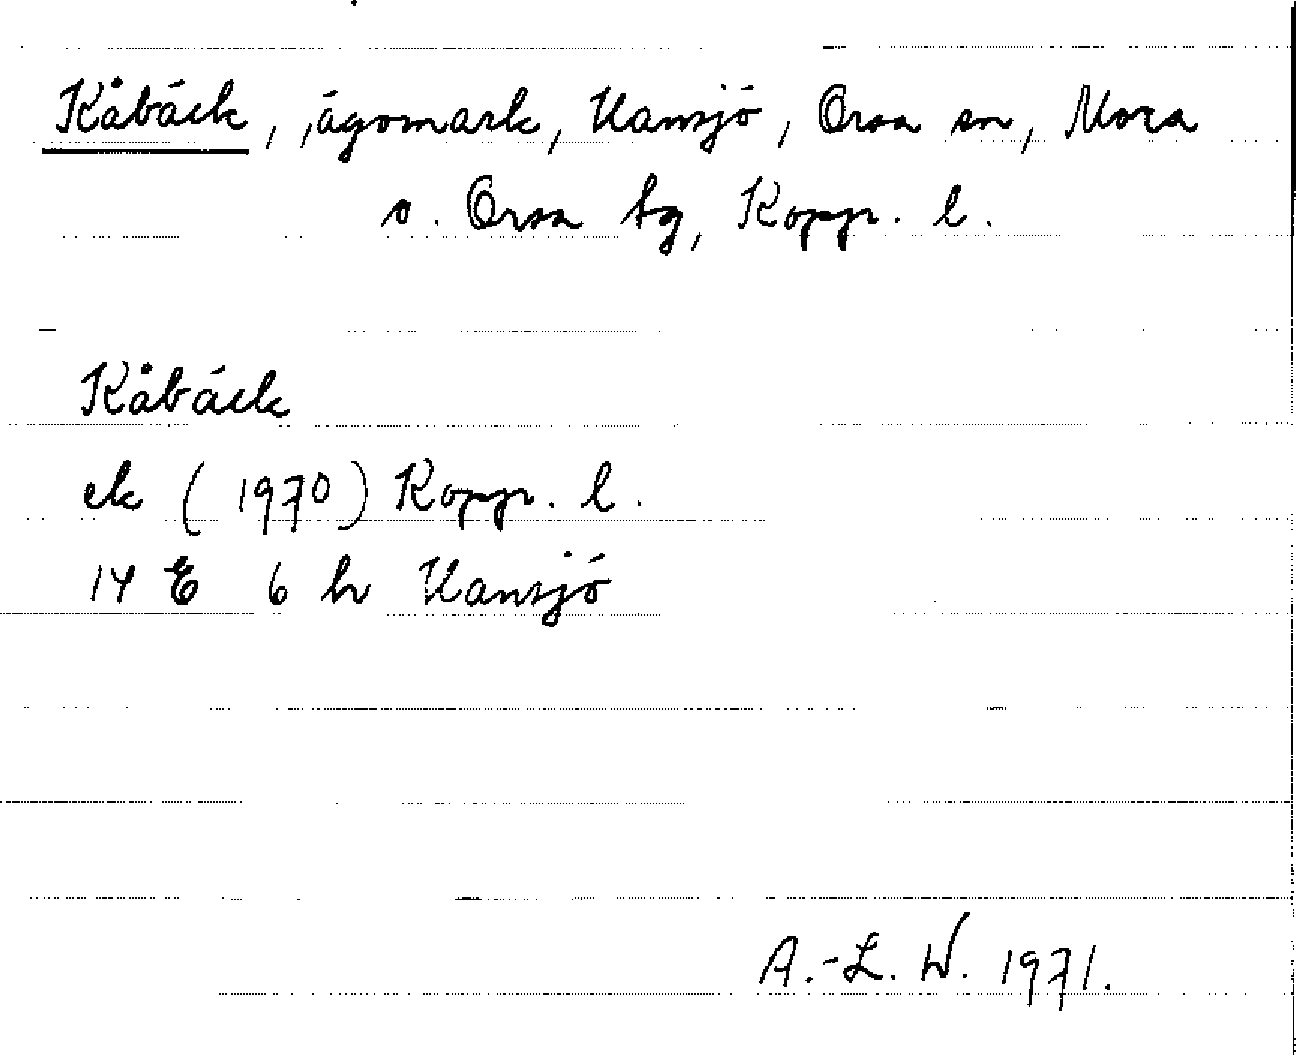 Kåbäck, ägomark, Hansjö, Orsa sn, Mora
o. Orsa tg, Kopp. l.
Kåbäck
ek (1970) Kopp. l.
14 E 6 h Hansjö
A.-L. W. 1971.